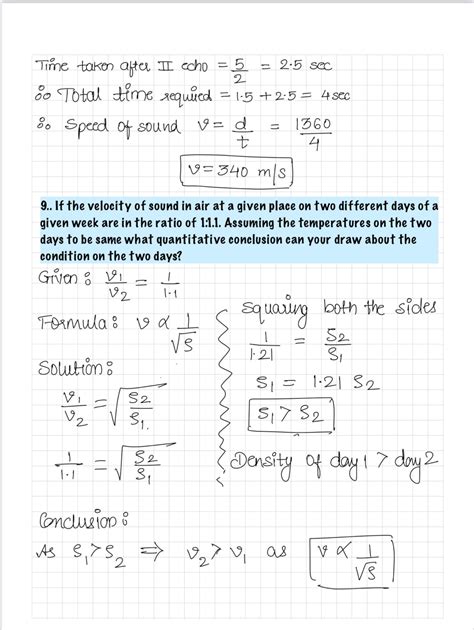 Time taken after II echo = 5/2 = 2.5 sec
∴ Total time required = 1.5 + 2.5 = 4 sec
∴ Speed of sound v = d/t = 1360/4
v = 340 m/s
9.. If the velocity of sound in air at a given place on two different days of a
given week are in the ratio of 1:1.1. Assuming the temperatures on the two
days to be same what quantitative conclusion can your draw about the
condition on the two days?
Given : v₁/v₂ = 1/1.1
Formula : v ∝ 1/√ρ
Solution :
v₁/v₂ = √(ρ₂/ρ₁)
1/1.1 = √(ρ₂/ρ₁)
Squaring both the sides
1/1.21 = ρ₂/ρ₁
ρ₁ = 1.21 ρ₂
ρ₁ > ρ₂
Density of day 1 > day 2
Conclusion :
As ρ₁ > ρ₂ ⇒ v₂ > v₁ as v ∝ 1/√ρ